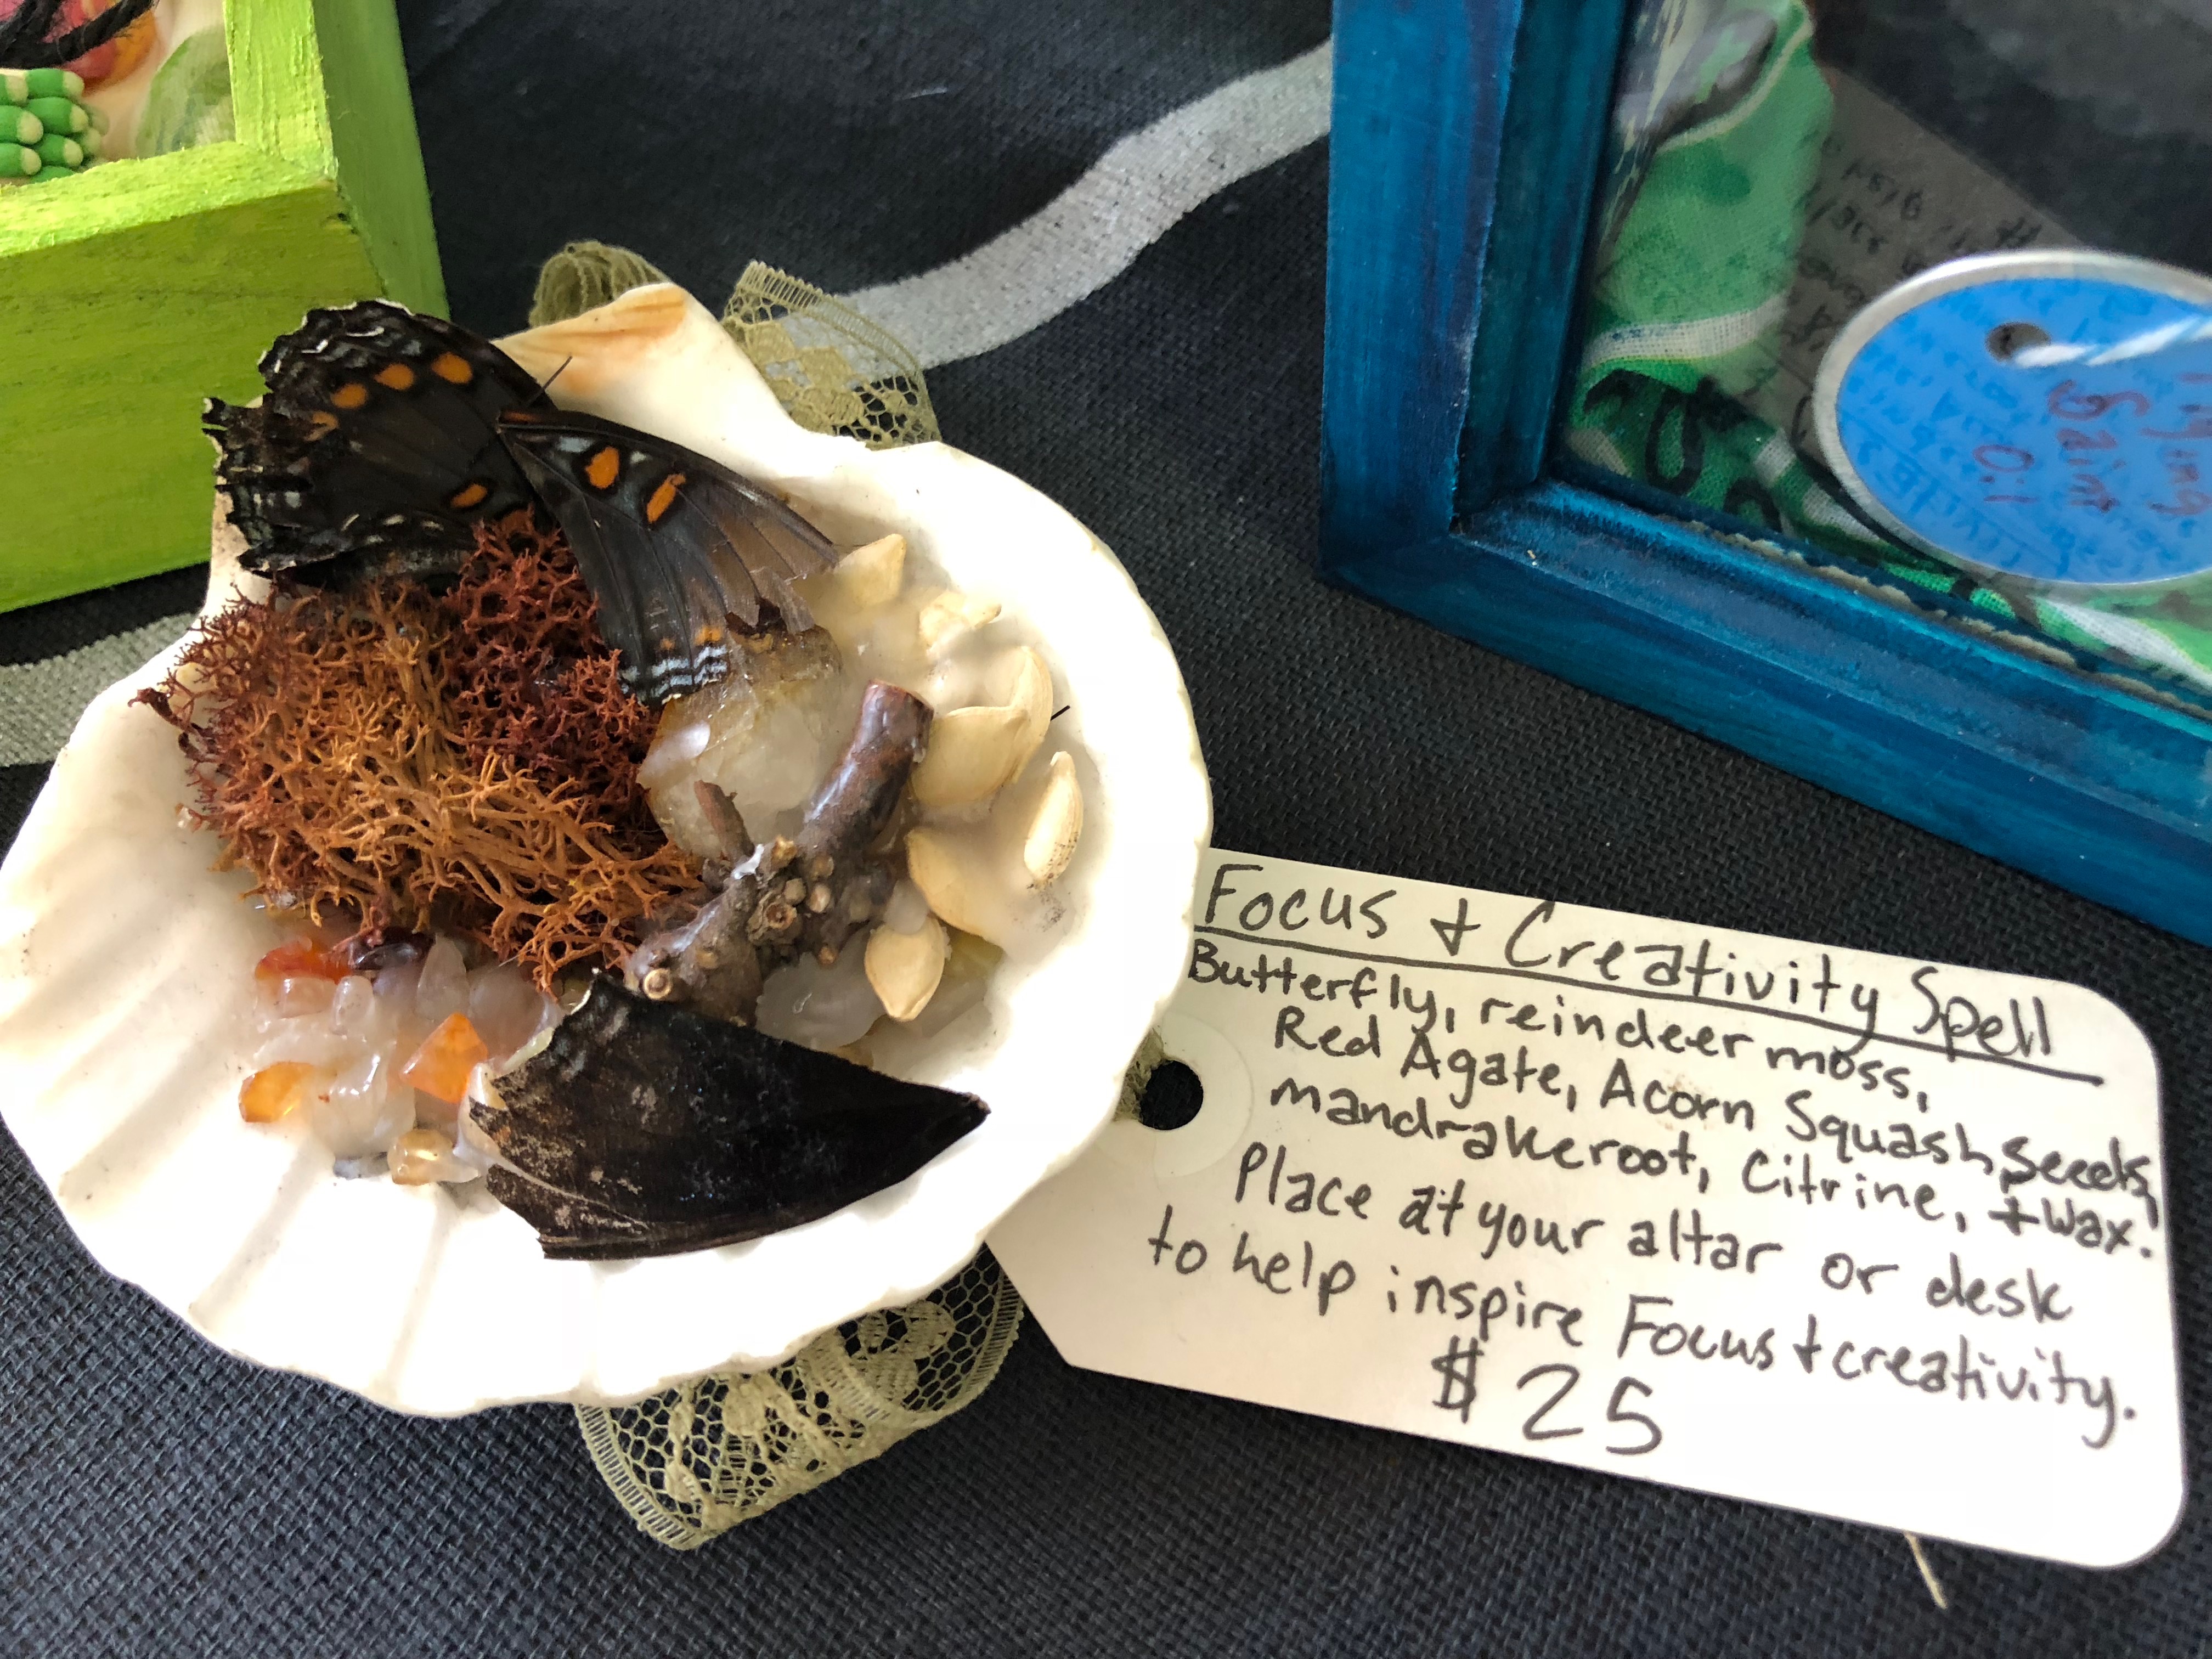 Focus + Creativity Spell
Butterfly, reindeer moss,
Red Agate, Acorn Squash seeds,
mandrakeroot, Citrine, + Wax.
Place at your altar or desk
to help inspire Focus + creativity.
$25
Saint